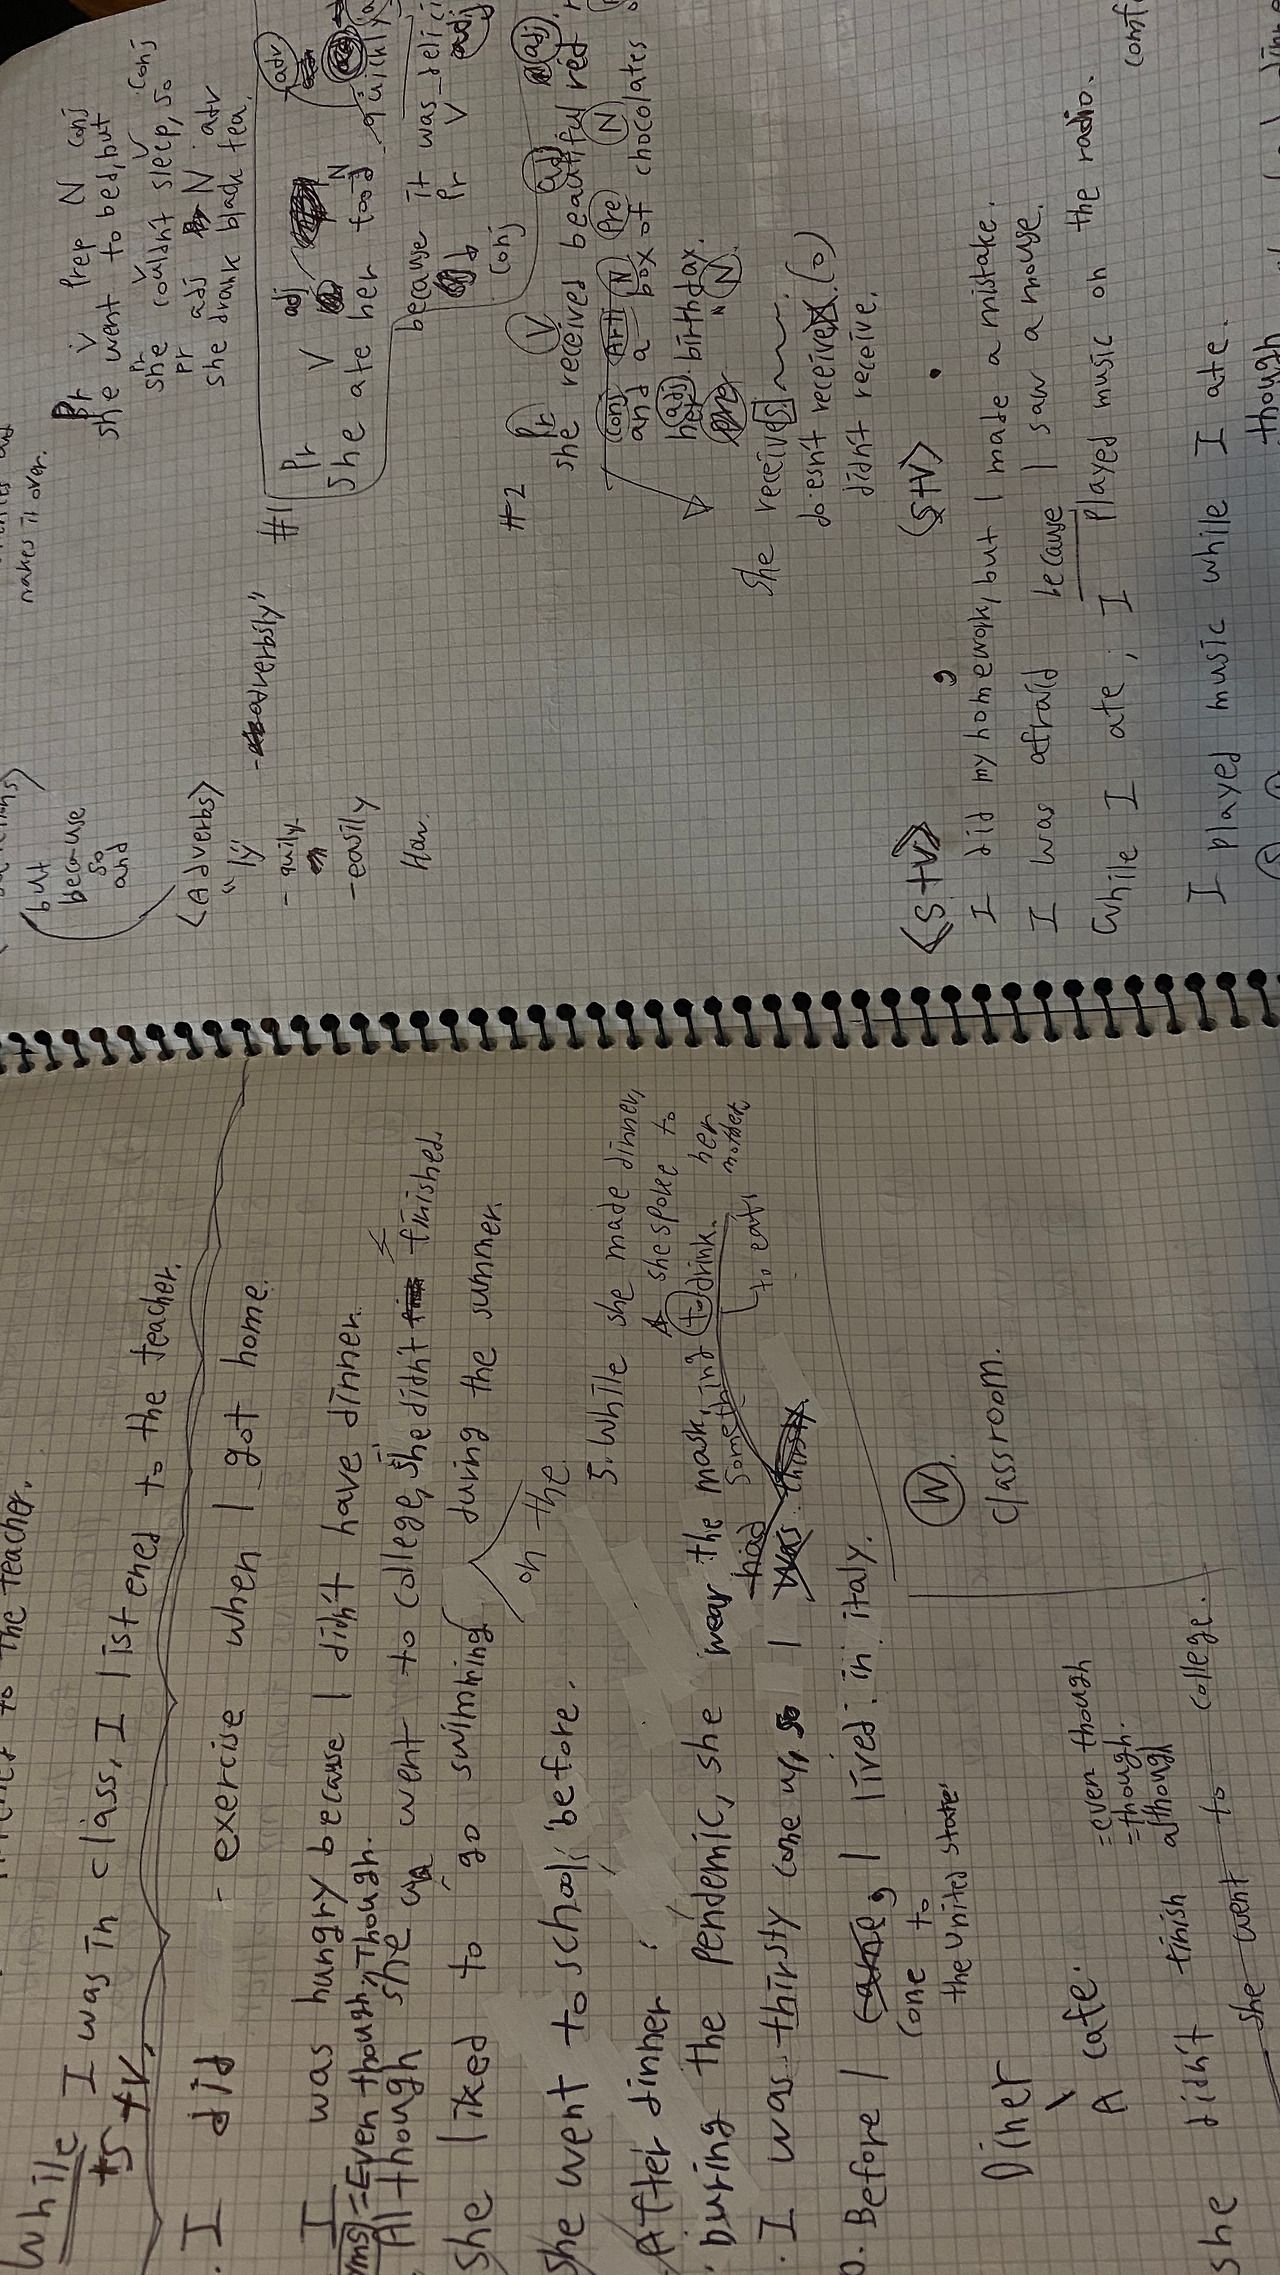 to the teacher.
While I was in class, I listened to the teacher.
S + V,
. I did - exercise when I got home.
I was hungry because I didn't have dinner.
=Even though, Though.
Although she went to college, she didn't finished.
she liked to go swimming during the summer.
on the
she went to school before.
After dinner
5. While she made dinner,
she spoke to
her
mother
During the pendemic, she wear the mask,
. I was thirsty come up, so I had something to drink.
was thirsty
to eat
0. Before I came, I lived in italy.
come to
the United State
W
Classroom.
Diner
A cafe.
=even though
=though.
although
she didn't finish college.
she went to
makes it over.
but
because
so
and
<Adverbs>
"ly"
-easily
Pr V Prep N conj
she went to bed, but
Pr V V conj
she couldn't sleep, so
Pr adj N adv
she drank black tea.
#1
Pr V adj N adv
She ate her food quickly
because it was delici
conj Pr V adj
#2
Pr V adj adj
she received beautiful red
conj Art N Pre N
and a box of chocolates
adj N
her birthday.
she receives
doesn't receive (o)
didn't receive.
<S+V> , <S+V> .
I did my homework, but I made a mistake.
I was afraid because I saw a mouse.
While I ate, I played music on the radio.
I played music while I ate.
though